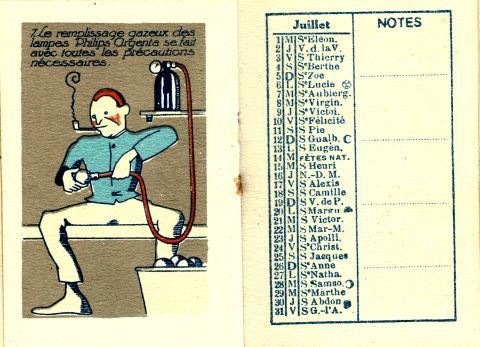 7. Le remplissage gazeux des
lampes Philips Argenta se fait
avec toutes les précautions
nécessaires.
Juillet
1 M Sᵗ Eléon.
2 J V. d. la V.
3 V S Thierry
4 S Sᵉ Berthe
5 D Sᵉ Zoe
6 L Sᵉ Lucie
7 M Sᵉ Aubierg.
8 M Sᵉ Virgin.
9 J Sᵉ Victoi.
10 V Sᵉ Félicité
11 S S Pie
12 D S Gualb.
13 L S Eugén.
14 M FÊTES NAT.
15 M S Henri
16 J N.-D. M.
17 V S Alexis
18 S S Camille
19 D S V. de P.
20 L S Margu
21 M S Victor.
22 M S Mar-M.
23 J S Apolli.
24 V Sᵉ Christ.
25 S S Jacques
26 D Sᵉ Anne
27 L Sᵉ Natha.
28 M S Samso.
29 M Sᵉ Marthe
30 J S Abdon
31 V S G.-l'A.
NOTES